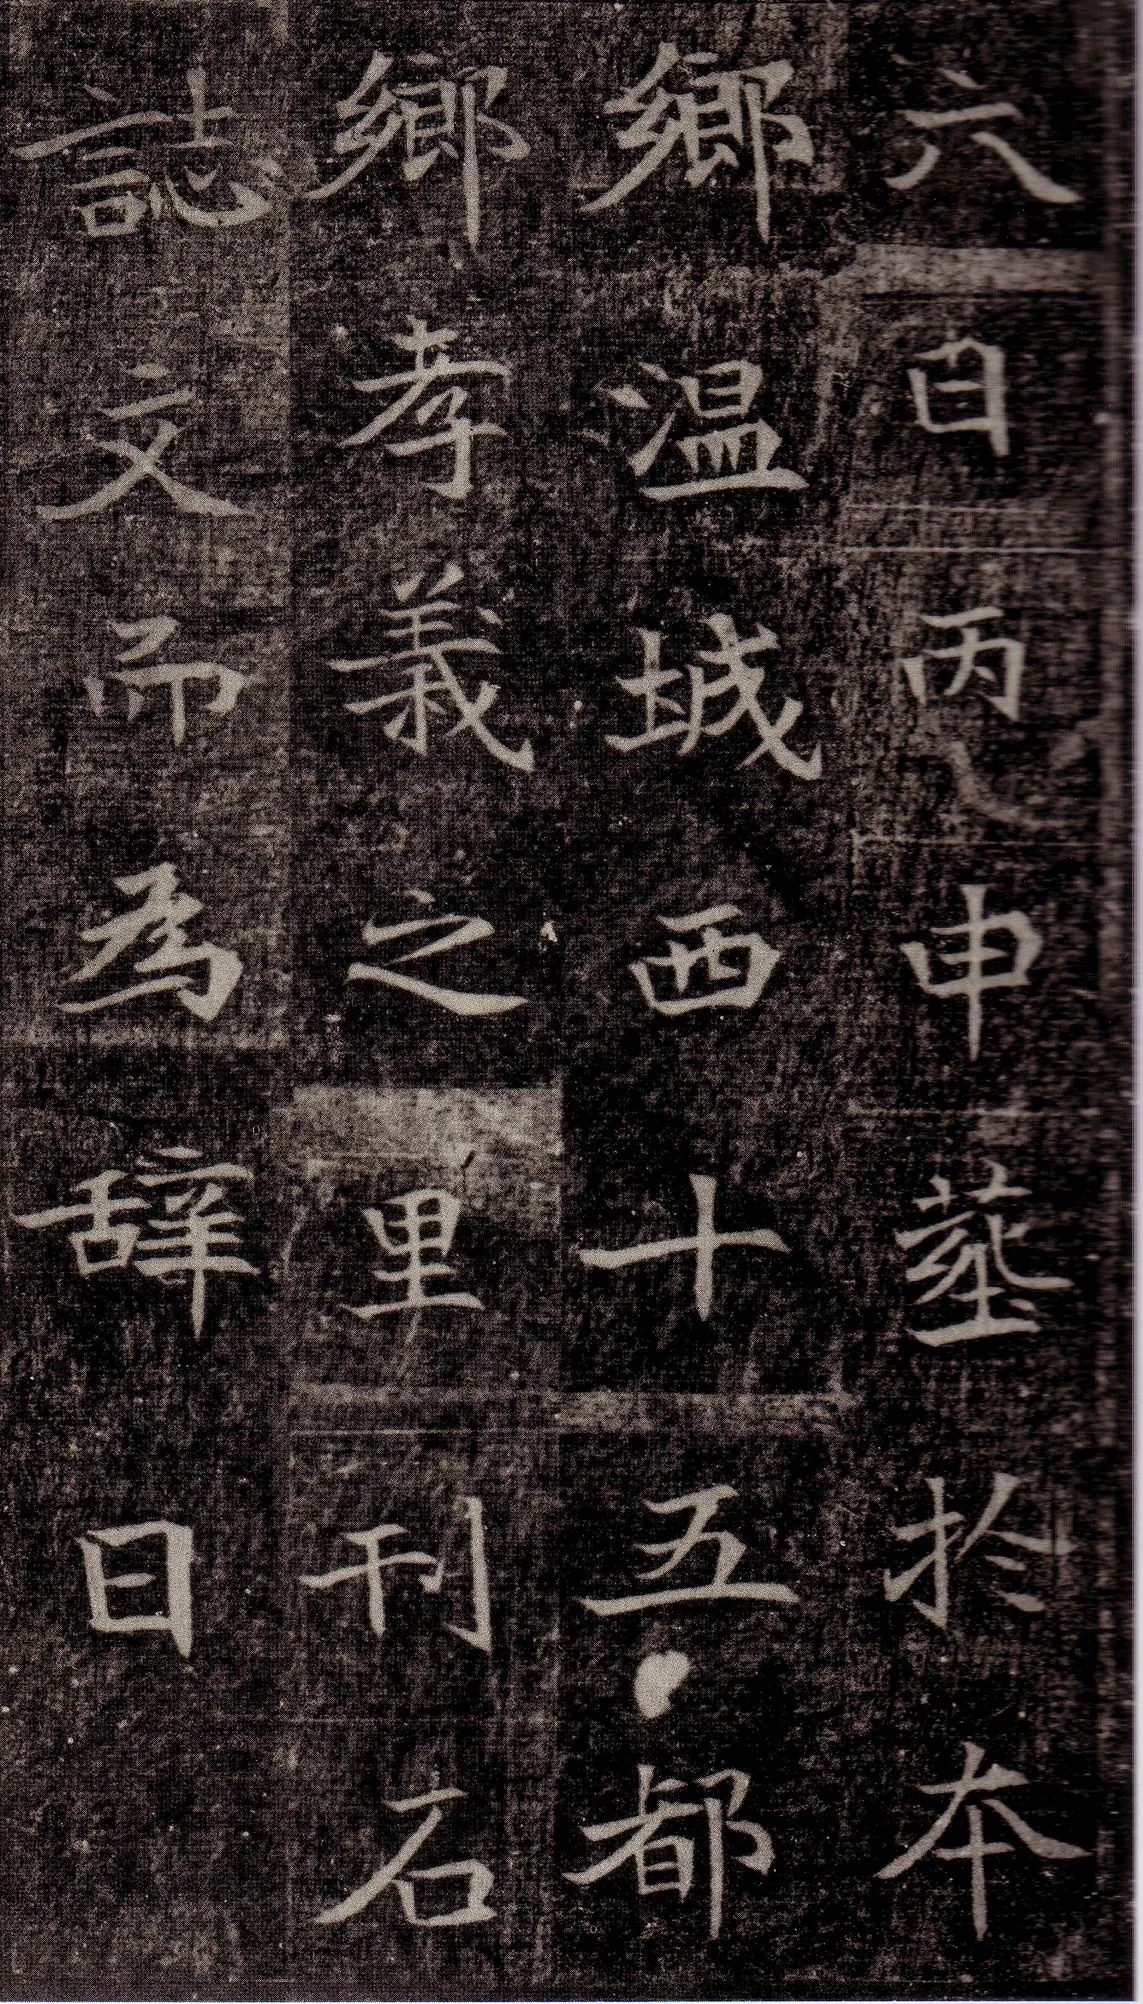 六日丙申葬於本
鄉温城西十五都
鄉孝義之里刊石
誌文而為辤曰